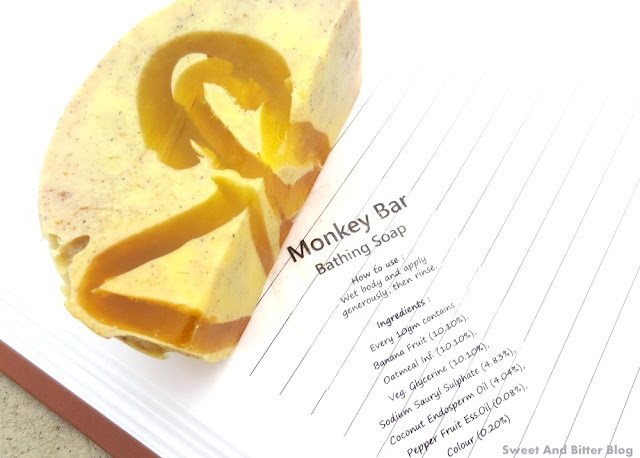 Monkey Bar
Bathing Soap
How to use :
Wet body and apply
generously, then rinse.
Ingredients :
Every 10gm contains
Banana Fruit (10.10%),
Oatmeal Inf. (10.10%),
Veg. Glycerine (10.10%),
Sodium Sauryl Sulphate (4.83%),
Coconut Endosperm Oil (4.04%),
Pepper Fruit Ess.Oil (0.08%),
Colour (0.20%)
Sweet And Bitter Blog